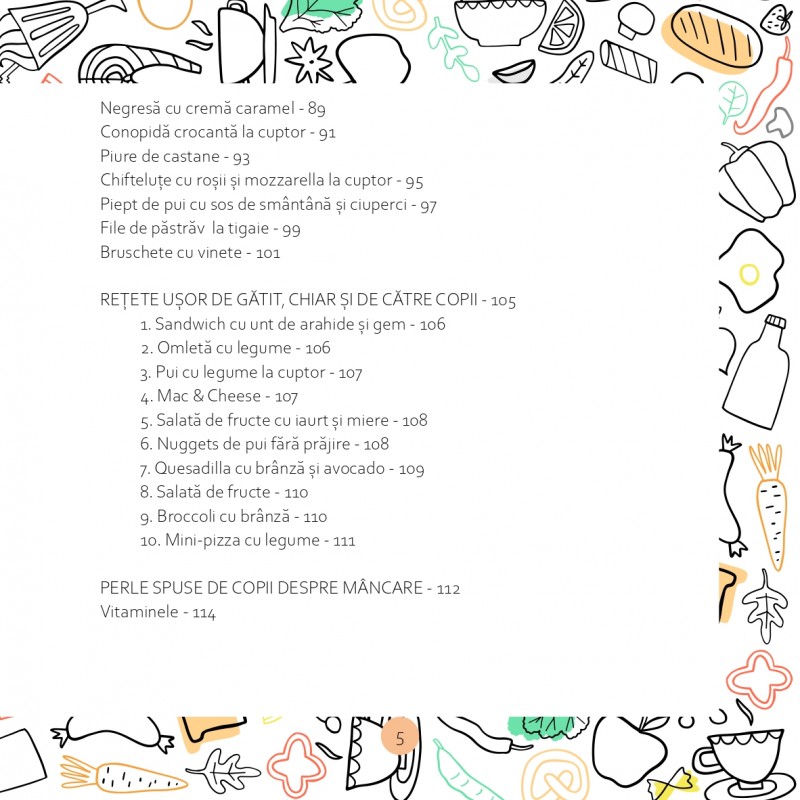 Negresă cu cremă caramel - 89
Conopidă crocantă la cuptor - 91
Piure de castane - 93
Chifteluțe cu roșii și mozzarella la cuptor - 95
Piept de pui cu sos de smântână și ciuperci - 97
File de păstrăv la tigaie - 99
Bruschete cu vinete - 101
REȚETE UȘOR DE GĂTIT, CHIAR ȘI DE CĂTRE COPII - 105
1. Sandwich cu unt de arahide și gem - 106
2. Omletă cu legume - 106
3. Pui cu legume la cuptor - 107
4. Mac & Cheese - 107
5. Salată de fructe cu iaurt și miere - 108
6. Nuggets de pui fără prăjire - 108
7. Quesadilla cu brânză și avocado - 109
8. Salată de fructe - 110
9. Broccoli cu brânză - 110
10. Mini-pizza cu legume - 111
PERLE SPUSE DE COPII DESPRE MÂNCARE - 112
Vitaminele - 114
5